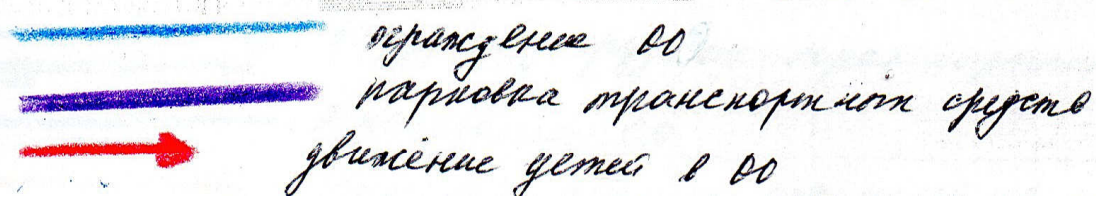 ограждение ОО
парковка транспортных средств
движение детей в ОО